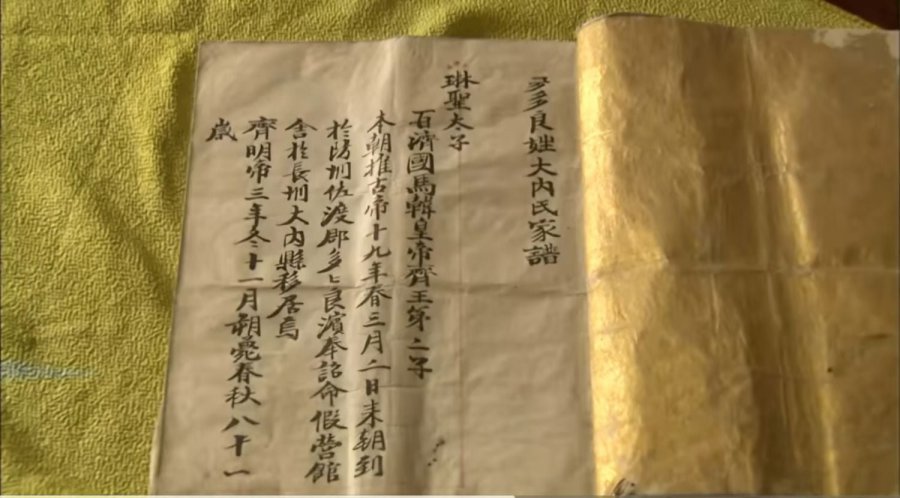 多多良姓大内氏家譜
琳聖太子
百濟國馬韓皇帝齊王第二子
本朝推古帝十九年春三月二日来朝到
於防州佐渡郡多々良濱奉詔命假営館
舎於長州大内縣移居焉
齊明帝三年冬十一月朔薨春秋八十一
歳